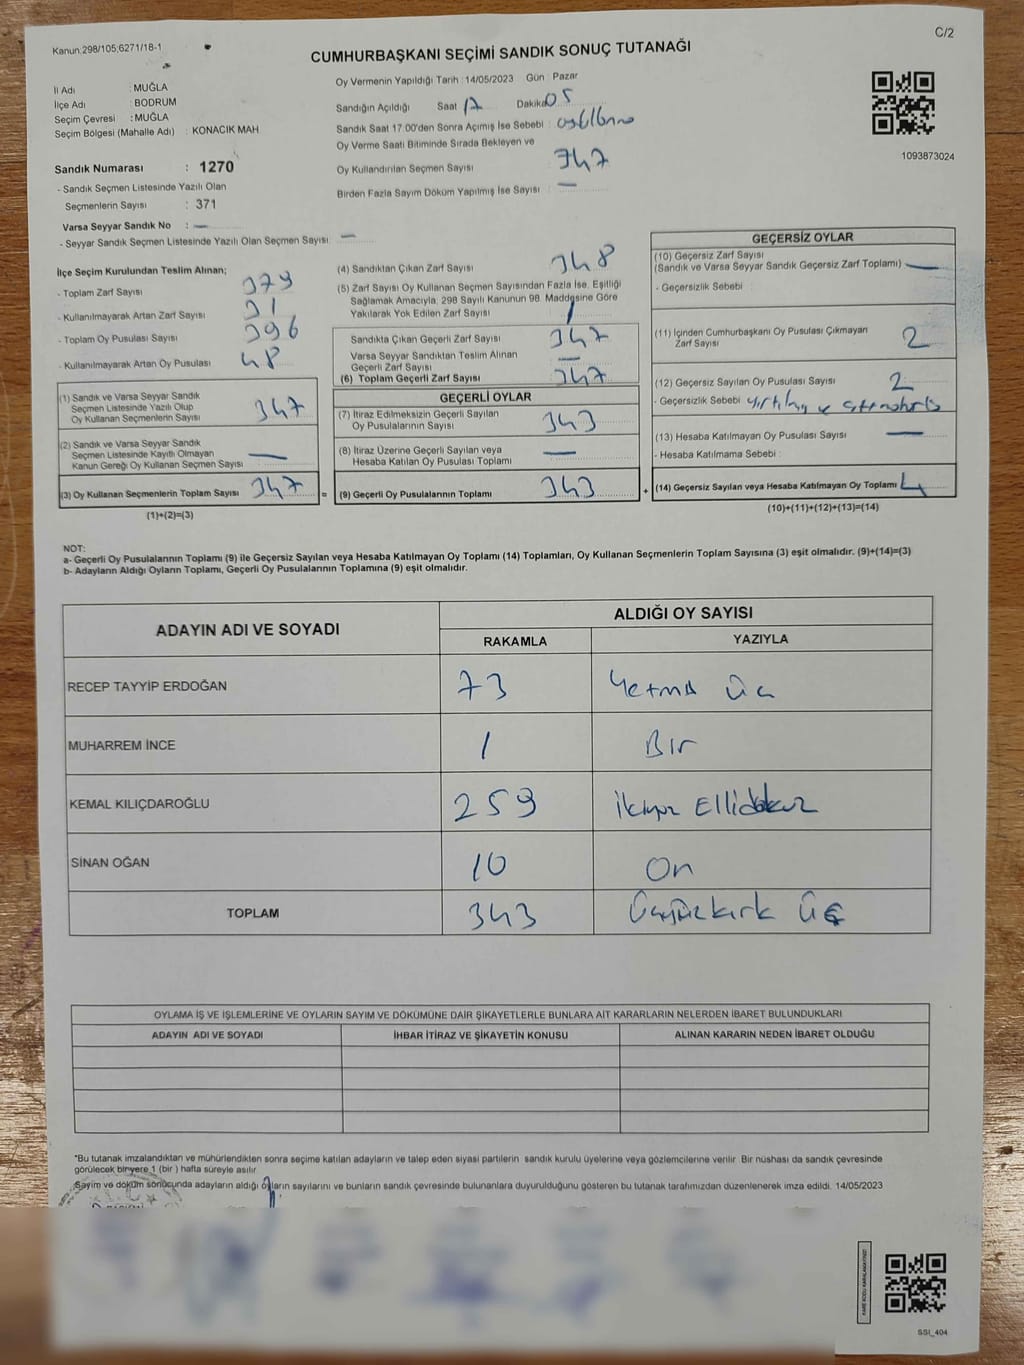 Kanun:298/105;6271/18-1
C/2
CUMHURBAŞKANI SEÇİMİ SANDIK SONUÇ TUTANAĞI
İl Adı : MUĞLA
İlçe Adı : BODRUM
Seçim Çevresi : MUĞLA
Seçim Bölgesi (Mahalle Adı) : KONACIK MAH
Sandık Numarası : 1270
- Sandık Seçmen Listesinde Yazılı Olan
Seçmenlerin Sayısı : 371
Varsa Seyyar Sandık No : —
- Seyyar Sandık Seçmen Listesinde Yazılı Olan Seçmen Sayısı : —
Oy Vermenin Yapıldığı Tarih : 14/05/2023 Gün : Pazar
Sandığın Açıldığı Saat 17 Dakika 05
Sandık Saat 17:00'den Sonra Açımış İse Sebebi :
Oy Verme Saati Bitiminde Sırada Bekleyen ve
Oy Kullandırılan Seçmen Sayısı : 347
Birden Fazla Sayım Döküm Yapılmış İse Sayısı : —
1093873024
İlçe Seçim Kurulundan Teslim Alınan;
- Toplam Zarf Sayısı : 379
- Kullanılmayarak Artan Zarf Sayısı : 31
- Toplam Oy Pusulası Sayısı : 396
- Kullanılmayarak Artan Oy Pusulası : 48
(1) Sandık ve Varsa Seyyar Sandık
Seçmen Listesinde Yazılı Olup
Oy Kullanan Seçmenlerin Sayısı : 347
(2) Sandık ve Varsa Seyyar Sandık
Seçmen Listesinde Kayıtlı Olmayan
Kanun Gereği Oy Kullanan Seçmen Sayısı : —
(3) Oy Kullanan Seçmenlerin Toplam Sayısı : 347
(1)+(2)=(3)
=
(4) Sandıktan Çıkan Zarf Sayısı : 348
(5) Zarf Sayısı Oy Kullanan Seçmen Sayısından Fazla İse, Eşitliği
Sağlamak Amacıyla, 298 Sayılı Kanunun 98. Maddesine Göre
Yakılarak Yok Edilen Zarf Sayısı : 1
Sandıkta Çıkan Geçerli Zarf Sayısı : 347
Varsa Seyyar Sandıktan Teslim Alınan
Geçerli Zarf Sayısı : —
(6) Toplam Geçerli Zarf Sayısı : 347
GEÇERLİ OYLAR
(7) İtiraz Edilmeksizin Geçerli Sayılan
Oy Pusulalarının Sayısı : 343
(8) İtiraz Üzerine Geçerli Sayılan veya
Hesaba Katılan Oy Pusulası Toplamı : —
(9) Geçerli Oy Pusulalarının Toplamı : 343
+
GEÇERSİZ OYLAR
(10) Geçersiz Zarf Sayısı
(Sandık ve Varsa Seyyar Sandık Geçersiz Zarf Toplamı) : —
- Geçersizlik Sebebi :
(11) İçinden Cumhurbaşkanı Oy Pusulası Çıkmayan
Zarf Sayısı : 2
(12) Geçersiz Sayılan Oy Pusulası Sayısı : 2
- Geçersizlik Sebebi :
(13) Hesaba Katılmayan Oy Pusulası Sayısı : —
- Hesaba Katılmama Sebebi :
(14) Geçersiz Sayılan veya Hesaba Katılmayan Oy Toplamı : 4
(10)+(11)+(12)+(13)=(14)
NOT:
a- Geçerli Oy Pusulalarının Toplamı (9) ile Geçersiz Sayılan veya Hesaba Katılmayan Oy Toplamı (14) Toplamları, Oy Kullanan Seçmenlerin Toplam Sayısına (3) eşit olmalıdır. (9)+(14)=(3)
b- Adayların Aldığı Oyların Toplamı, Geçerli Oy Pusulalarının Toplamına (9) eşit olmalıdır.
ADAYIN ADI VE SOYADI ALDIĞI OY SAYISI
RAKAMLA YAZIYLA
RECEP TAYYİP ERDOĞAN 73 Yetmiş üç
MUHARREM İNCE 1 Bir
KEMAL KILIÇDAROĞLU 259 İkiyüz Ellidokuz
SİNAN OĞAN 10 On
TOPLAM 343 Üçyüzkırk Üç
OYLAMA İŞ VE İŞLEMLERİNE VE OYLARIN SAYIM VE DÖKÜMÜNE DAİR ŞİKAYETLERLE BUNLARA AİT KARARLARIN NELERDEN İBARET BULUNDUKLARI
ADAYIN ADI VE SOYADI İHBAR İTİRAZ VE ŞİKAYETİN KONUSU ALINAN KARARIN NEDEN İBARET OLDUĞU
*Bu tutanak imzalandıktan ve mühürlendikten sonra seçime katılan adayların ve talep eden siyasi partilerin sandık kurulu üyelerine veya gözlemcilerine verilir. Bir nüshası da sandık çevresinde
görülecek biryere 1 (bir ) hafta süreyle asılır.
Sayım ve döküm sonucunda adayların aldığı oyların sayılarını ve bunların sandık çevresinde bulunanlara duyurulduğunu gösteren bu tutanak tarafımızdan düzenlenerek imza edildi. 14/05/2023
KARE KODU KARALAMAYINIZ!
SSI_404